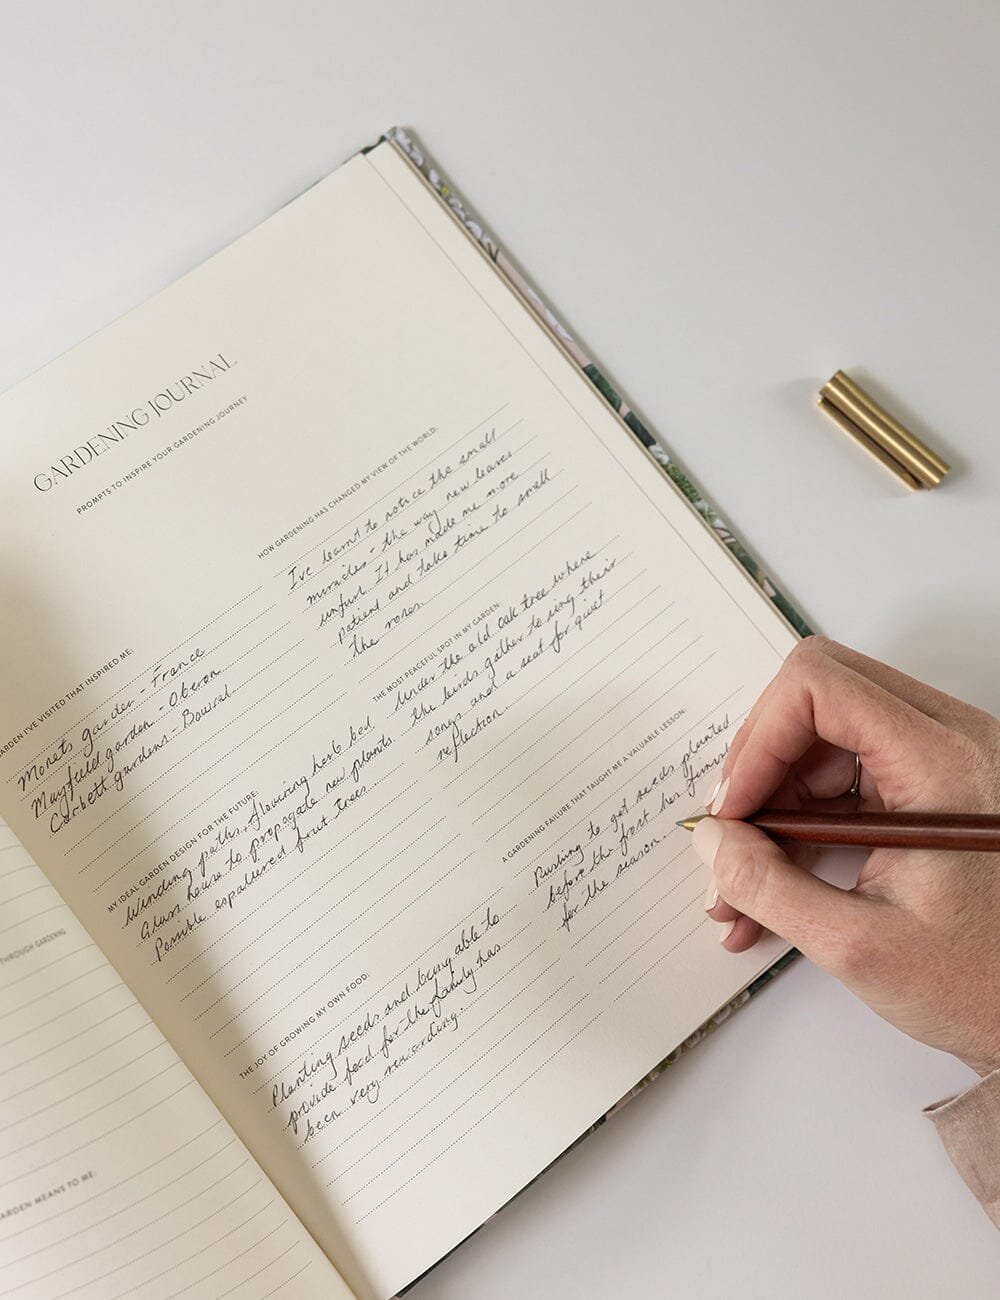 GARDENING JOURNAL
PROMPTS TO INSPIRE YOUR GARDENING JOURNEY
GARDEN I'VE VISITED THAT INSPIRED ME:
Monets garden - France
Mayfield garden - Oberon
Corbett gardens - Bowral
MY IDEAL GARDEN DESIGN FOR THE FUTURE:
Winding paths, flowering herb bed.
Glass house to propagate new plants.
Possible espaliered fruit trees
THE JOY OF GROWING MY OWN FOOD:
Planting seeds and being able to
provide food for the family has
been very rewarding.
HOW GARDENING HAS CHANGED MY VIEW OF THE WORLD:
I've learnt to notice the small
miracles - the way new leaves
unfurl. It has made me more
patient and take time to smell
the roses.
THE MOST PEACEFUL SPOT IN MY GARDEN:
Under the old oak tree where
the birds gather to sing their
songs and a seat for quiet
reflection.
A GARDENING FAILURE THAT TAUGHT ME A VALUABLE LESSON:
Rushing to get seeds planted
before the frost has finish
for the season.
THROUGH GARDENING
GARDEN MEANS TO ME: